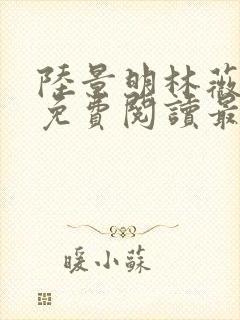 陸景明林薇
免費閱讀最
暖小蘇